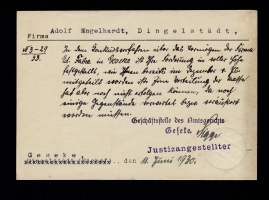 Firma Adolf Engelhardt, Dingelstädt,
N 3-29
33.
In dem Konkursverfahren über das Vermögen der Firma
in Geseke ist Ihre Forderung in voller Höhe
festgestellt, wie Ihnen bereits im Dezember v. J.
mitgeteilt worden ist. Eine Verteilung der Masse
hat aber noch nicht erfolgen können, da noch
einige Gegenstände verwertet werden
müssen.
Geschäftsstelle des Amtsgerichts
Geseke.
Justizangestellter
Geseke, den 11. Juni 1930.